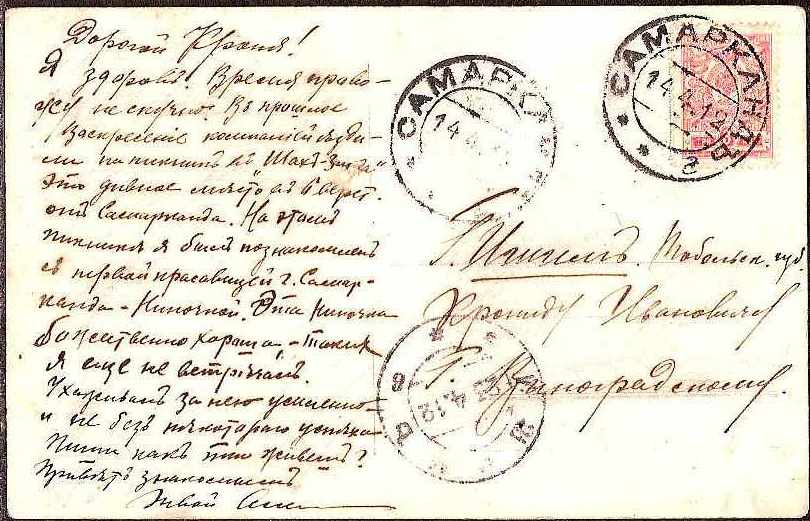 Дорогой Кроня!
Я здоровъ. Время прово-
жу не скучно. Въ прошлое
Воскресеніе компаніей ѣзди-
ли на пикникъ въ Шахъ-Зинда
Это дивное мѣсто въ 6 верст.
отъ Самарканда. На этомъ
пикникѣ я былъ познакомленъ
съ первой красавицей г. Самар-
канда - Ниночкой. Эта Ниночка
божественно хороша, - такихъ
я еще не встрѣчалъ.
Ухаживалъ за нею усиленно
и не безъ нѣкотораго успѣха.
Пиши какъ ты живешь?
Привѣтъ знакомымъ
Твой
САМАРКАНДЪ
14.4.12
САМАРК
14.4
г. Ишимъ. Тобольск. губ
Крониду Ивановичу
Г. Виноградскому
4.12